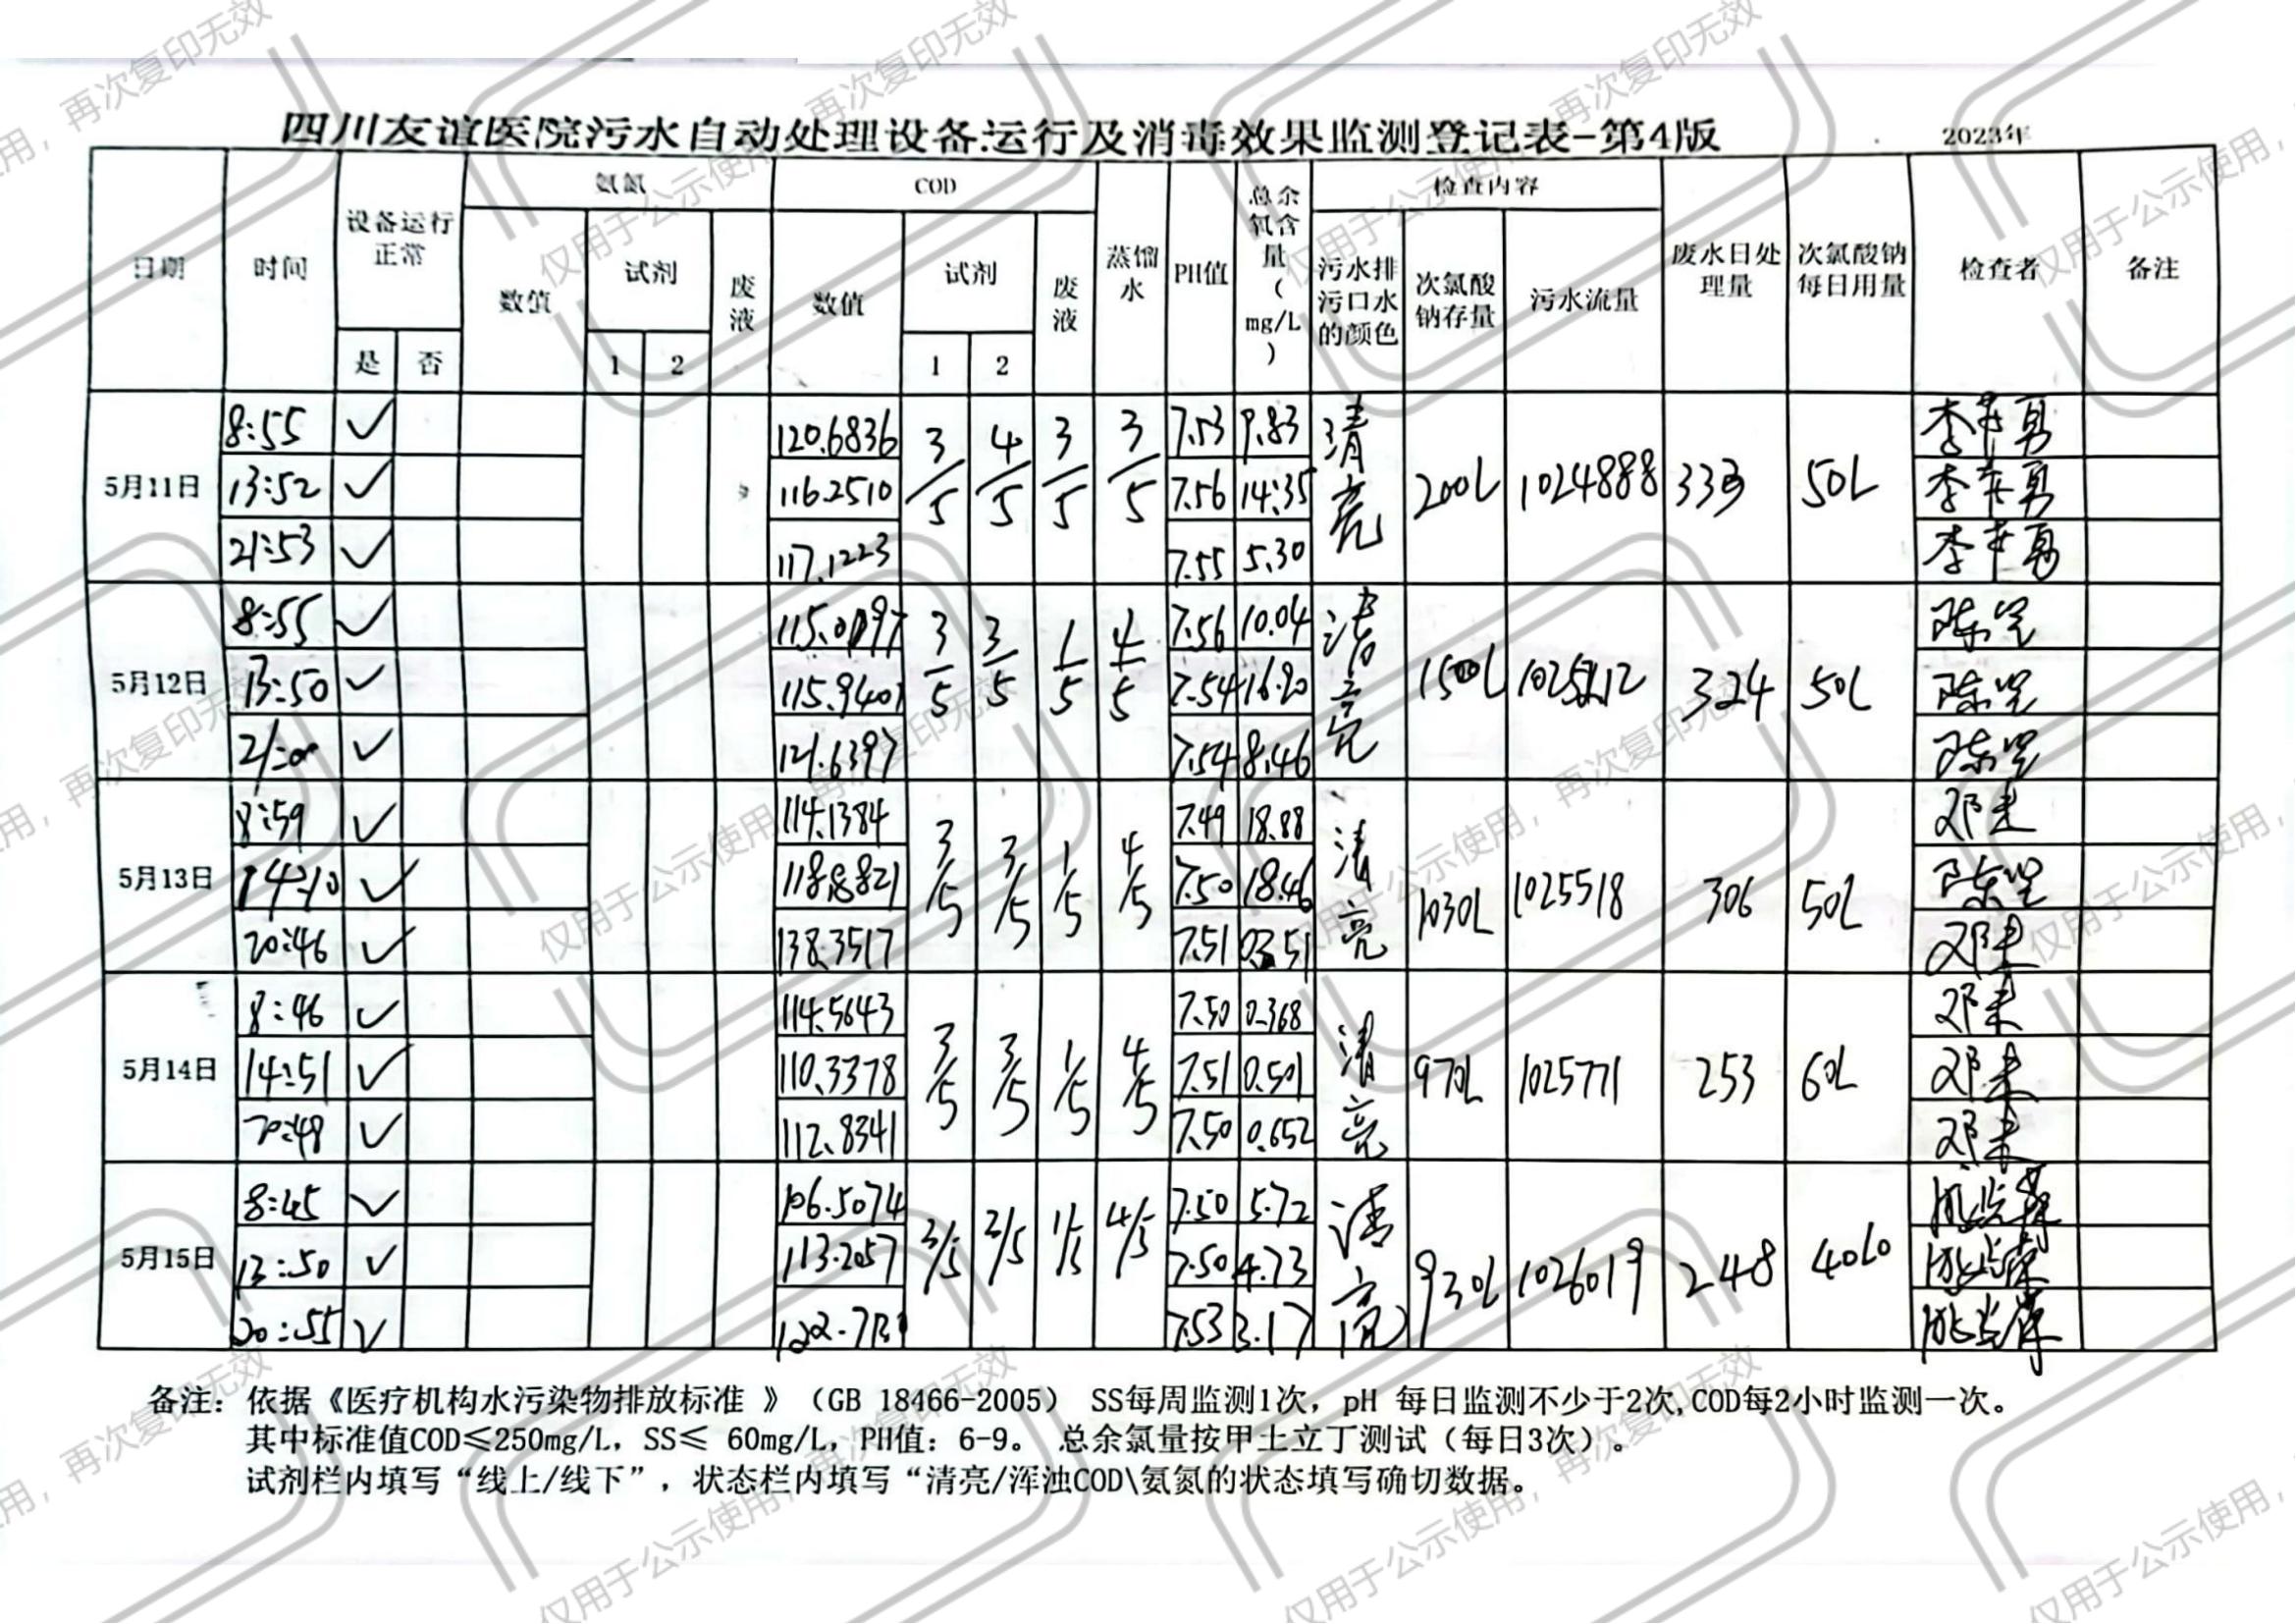 四川友谊医院污水自动处理设备运行及消毒效果监测登记表-第4版 2023年
日期 时间 设备运行正常 氨氮 COD 蒸馏水 PH值 总余氧含量(mg/L) 检查内容 废水日处理量 次氯酸钠每日用量 检查者 备注
是 否 数值 试剂 废液 数值 试剂 废液 污水排污口水的颜色 次氯酸钠存量 污水流量
1 2 1 2
5月11日 8:55 ✓ 120.6836 3/5 4/5 3/5 3/5 7.53 9.83 清亮 200L 1024888 333 50L
13:52 ✓ 116.2510 7.56 14.35
21:53 ✓ 117.1223 7.55 5.30
5月12日 8:55 ✓ 3/5 3/5 1/5 4/5 7.56 10.04 清亮 324 50L
13:50 ✓ 115.9401 7.54 16.20
21:00 ✓ 121.6397 7.54 8.46
5月13日 8:59 ✓ 114.1384 3/5 3/5 1/5 4/5 7.49 18.88 清亮 1030L 1025518 306 50L
14:10 ✓ 7.50 18.46
20:46 ✓ 138.3517 7.51
5月14日 8:46 ✓ 114.5643 3/5 3/5 1/5 4/5 7.50 0.368 清亮 970L 1025771 253 60L
14:51 ✓ 110.3378 7.51 0.501
20:48 ✓ 112.8341 7.50 0.652
5月15日 8:45 ✓ 106.5074 3/5 3/5 1/5 4/5 7.50 5.72 清亮 930L 1026019 248
13:50 ✓ 113.2057 7.50 4.73
20:55 ✓ 7.53 3.17
备注：依据《医疗机构水污染物排放标准 》（GB 18466-2005） SS每周监测1次，pH 每日监测不少于2次,COD每2小时监测一次。
其中标准值COD≤250mg/L，SS≤ 60mg/L，PH值：6-9。 总余氯量按甲土立丁测试（每日3次）。
试剂栏内填写“线上/线下”，状态栏内填写“清亮/浑浊COD\氨氮的状态填写确切数据。
仅用于公示使用，再次复印无效